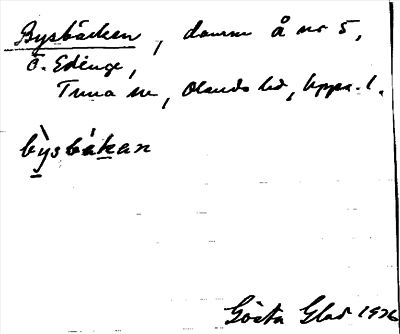 Bysbäcken, damm å nr 5,
Ö. Edinge,
Tuna sn, Olands hd, Upps. l.
bỳsbákan
Gösta Glad 1926